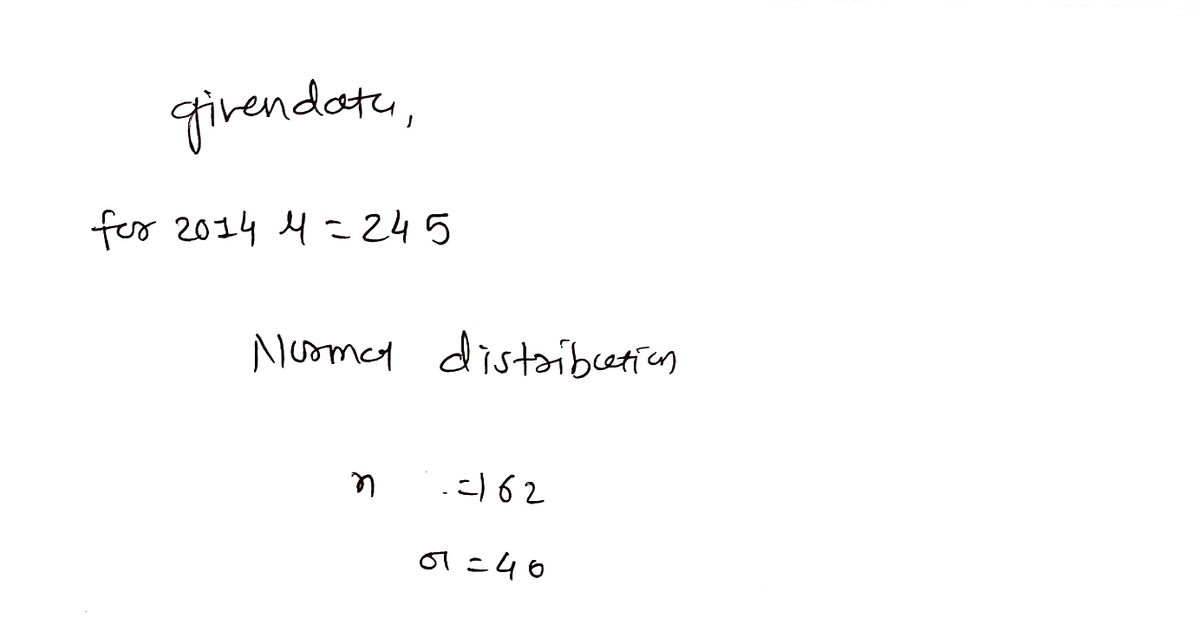 given data,
for 2014 μ = 245
Normal distribution
n = 162
σ = 40